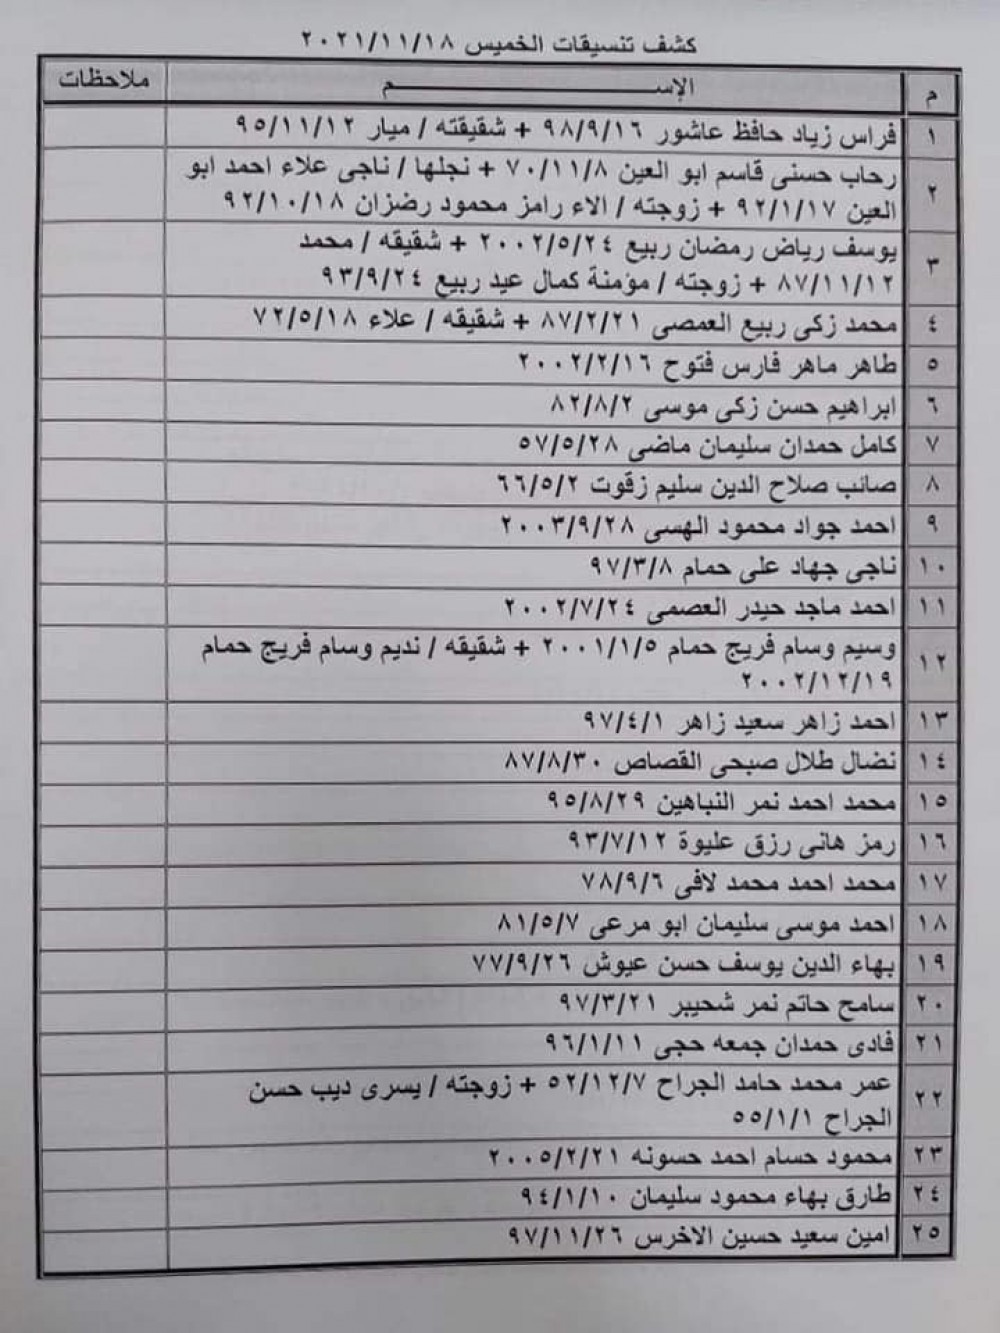 كشف تنسيقات الخميس ٢٠٢١/١١/١٨
م الإســـم ملاحظات
١ فراس زياد حافظ عاشور ٩٨/٩/١٦ + شقيقته / ميار ٩٥/١١/١٢
٢ رحاب حسنى قاسم ابو العين ٧٠/١١/٨ + نجلها / ناجى علاء احمد ابو
العين ٩٢/١/١٧ + زوجته / الاء رامز محمود رضزان ٩٢/١٠/١٨
٣ يوسف رياض رمضان ربيع ٢٠٠٢/٥/٢٤ + شقيقه / محمد
٨٧/١١/١٢ + زوجته / مؤمنة كمال عيد ربيع ٩٣/٩/٢٤
٤ محمد زكى ربيع العمصى ٨٧/٢/٢١ + شقيقه / علاء ٧٢/٥/١٨
٥ طاهر ماهر فارس فتوح ٢٠٠٢/٢/١٦
٦ ابراهيم حسن زكى موسى ٨٢/٨/٢
٧ كامل حمدان سليمان ماضى ٥٧/٥/٢٨
٨ صائب صلاح الدين سليم زقوت ٦٦/٥/٢
٩ احمد جواد محمود الهسى ٢٠٠٣/٩/٢٨
١٠ ناجى جهاد على حمام ٩٧/٣/٨
١١ احمد ماجد حيدر العصمى ٢٠٠٢/٧/٢٤
١٢ وسيم وسام فريج حمام ٢٠٠١/١/٥ + شقيقه / نديم وسام فريج حمام
٢٠٠٢/١٢/١٩
١٣ احمد زاهر سعيد زاهر ٩٧/٤/١
١٤ نضال طلال صبحى القصاص ٨٧/٨/٣٠
١٥ محمد احمد نمر النباهين ٩٥/٨/٢٩
١٦ رمز هانى رزق عليوة ٩٣/٧/١٢
١٧ محمد احمد محمد لافى ٧٨/٩/٦
١٨ احمد موسى سليمان ابو مرعى ٨١/٥/٧
١٩ بهاء الدين يوسف حسن عيوش ٧٧/٩/٢٦
٢٠ سامح حاتم نمر شحيبر ٩٧/٣/٢١
٢١ فادى حمدان جمعه حجى ٩٦/١/١١
٢٢ عمر محمد حامد الجراح ٥٢/١٢/٧ + زوجته / يسرى ديب حسن
الجراح ٥٥/١/١
٢٣ محمود حسام احمد حسونه ٢٠٠٥/٢/٢١
٢٤ طارق بهاء محمود سليمان ٩٤/١/١٠
٢٥ امين سعيد حسين الاخرس ٩٧/١١/٢٦